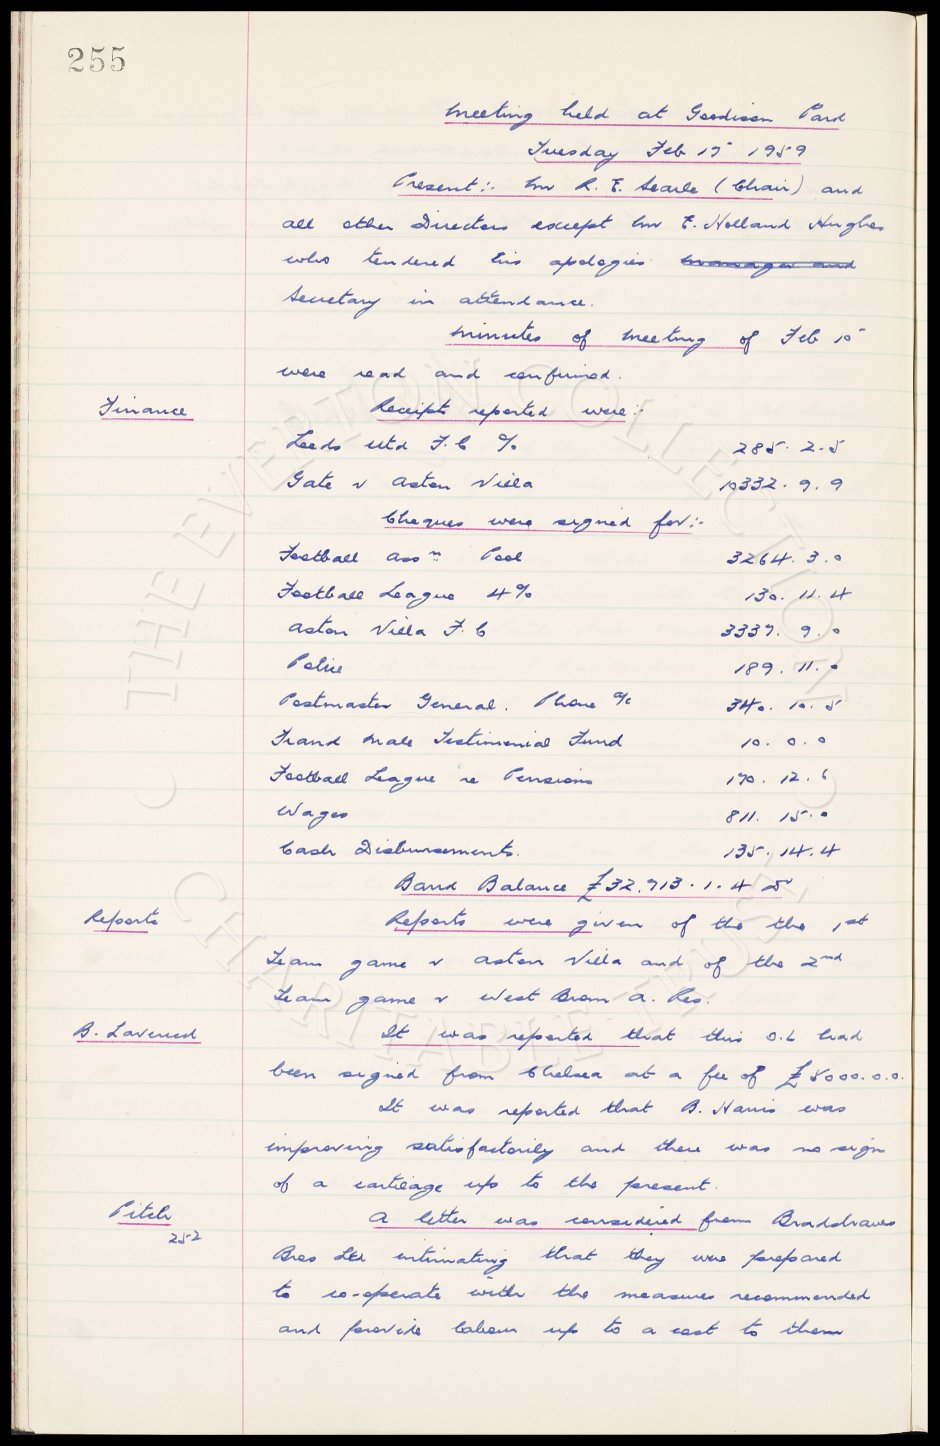 255
Meeting held at Goodison Park
Tuesday Feb 17 1959
Present:- Mr R. E. Searle (Chair) and
all other Directors except Mr E. Holland Hughes
who tendered his apologies manager and
Secretary in attendance.
Minutes of Meeting of Feb 10
were read and confirmed.
Finance
Receipts reported were:-
Leeds Utd F.C %
285. 2. 5
Gate v Aston Villa
10332. 9. 9
Cheques were signed for:-
Football Assn Pool
3264. 3. 0
Football League 4%
130. 11. 4
Aston Villa F.C
3337. 9. 0
Police
189. 11. 0
Postmaster General. Phone a/c
340. 10. 5
Frank Male Testimonial Fund
10. 0. 0
Football League re Pensions
170. 12. 6
Wages
811. 15. 0
Cash Disbursements.
135. 14. 4
Bank Balance £32,713. 1. 4
Reports
Reports were given of the the 1st
Team game v Aston Villa and of the 2nd
Team game v West Brom A. Res.
B. Laverick
It was reported that this O.L had
been signed from Chelsea at a fee of £5000.0.0.
It was reported that B. Harris was
improving satisfactorily and there was no sign
of a cartilage up to the present.
Pitch
252
A letter was considered from Bradshaws
Bros Ltd intimating that they were prepared
to co-operate with the measures recommended
and provide labour up to a cost to them
THE EVERTON COLLECTION
CHARITABLE TRUST